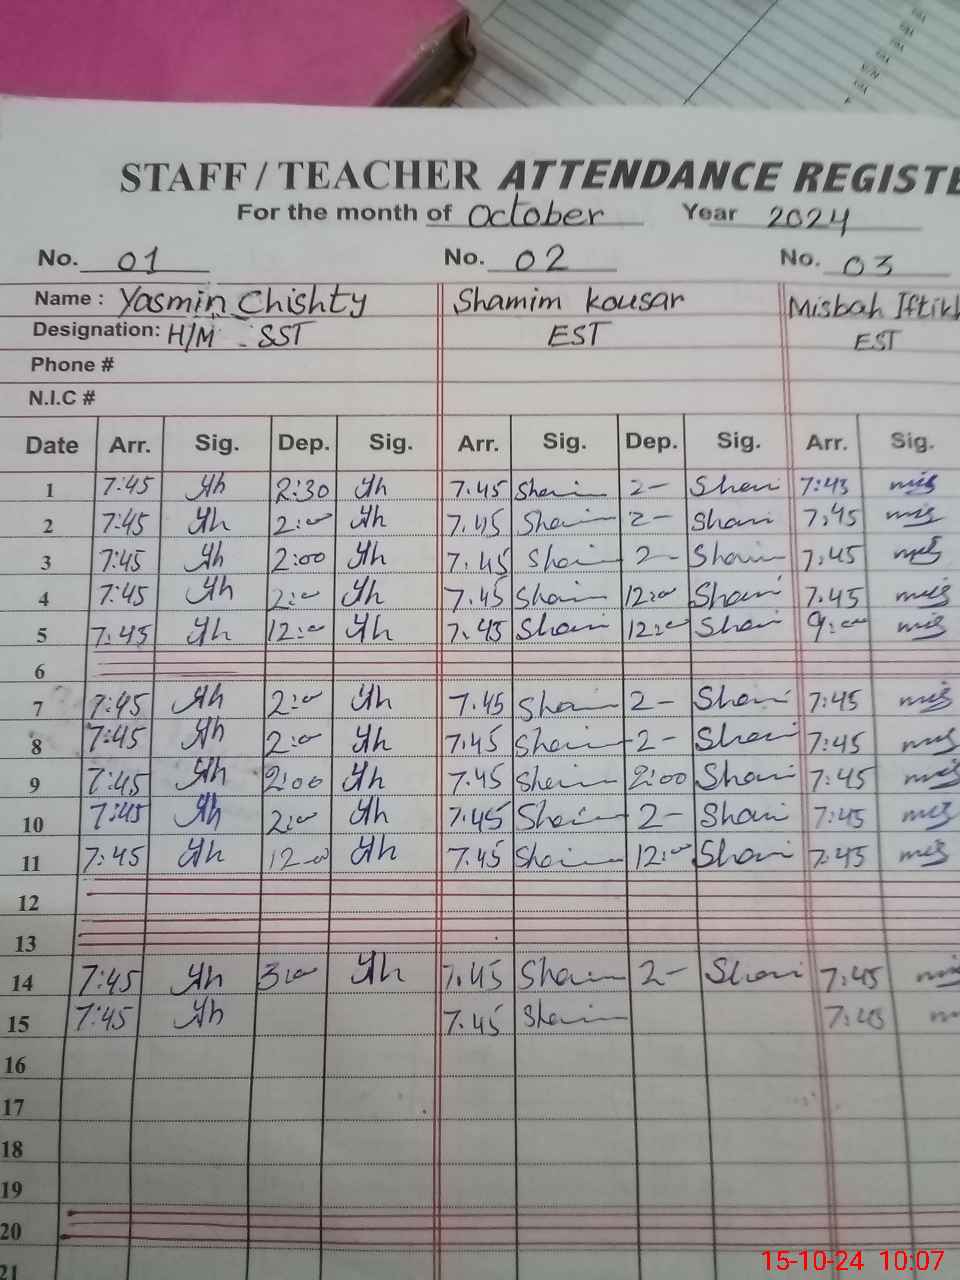 STAFF / TEACHER ATTENDANCE REGISTE
For the month of October Year 2024
No. 01 No. 02 No. 03
Name : Yasmin Chishty Shamim kousar Misbah Iftikh
Designation: H/M - SST EST EST
Phone #
N.I.C #
Date Arr. Sig. Dep. Sig. Arr. Sig. Dep. Sig. Arr. Sig.
1 7:45 Yh 2:30 Yh 7.45 Sham 2- Sham 7:45 mis
2 7:45 Yh 2:00 Yh 7.45 Sham 2- Sham 7:45 mis
3 7:45 Yh 2:00 Yh 7.45 Sham 2- Sham 7:45 mis
4 7:45 Yh 2:00 Yh 7.45 Sham 12:00 Sham 7.45 mis
5 7:45 Yh 12:00 Yh 7.45 Sham 12:00 Sham 9:00 mis
6
7 7:45 Yh 2:00 Yh 7.45 Sham 2- Sham 7:45 mis
8 7:45 Yh 2:00 Yh 7.45 Sham 2- Sham 7:45 mis
9 7:45 Yh 2:00 Yh 7.45 Sham 2:00 Sham 7:45 mis
10 7:45 Yh 2:00 Yh 7.45 Sham 2- Sham 7:45 mis
11 7:45 Yh 12-00 Yh 7.45 Sham 12:00 Sham 7:45 mis
12
13
14 7:45 Yh 3:00 Yh 7.45 Sham 2- Sham 7:45 mis
15 7:45 Yh 7.45 Sham 7:45
16
17
18
19
20
21
15-10-24 10:07